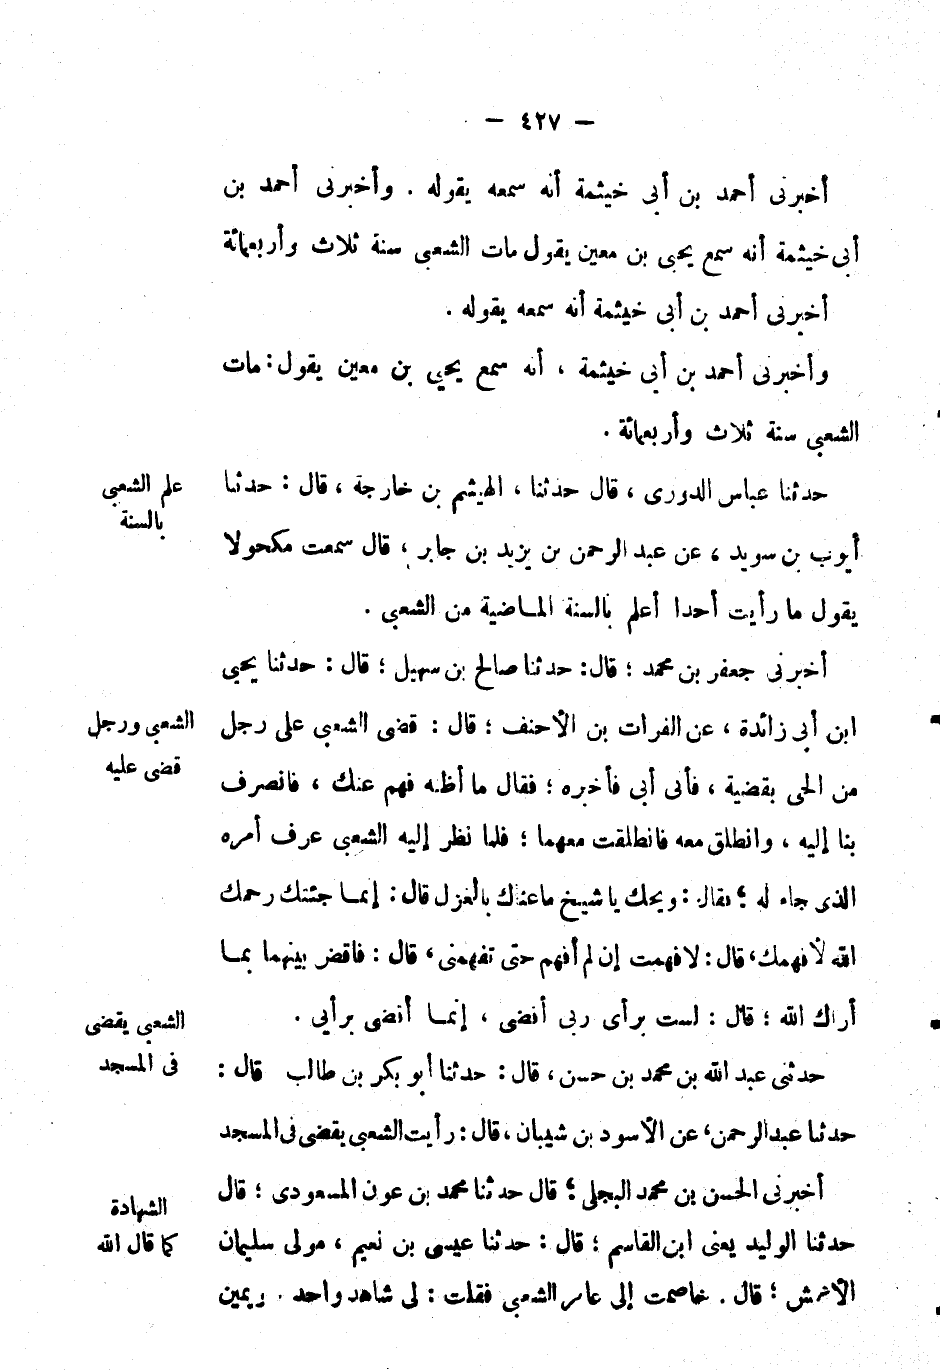 — ٤٢٧ —
أخبرنى أحمد بن أبى خيثمة أنه سمعه يقوله . وأخبرنى أحمد بن
أبى خيثمة أنه سمع يحيى بن معين يقول مات الشعبى سنة ثلاث وأربعمائة
أخبرنى أحمد بن أبى خيثمة أنه سمعه يقوله .
وأخبرنى أحمد بن أبى خيثمة ، أنه سمع يحيى بن معين يقول: مات
الشعبى سنة ثلاث وأربعمائة .
حدثنا عباس الدورى ، قال حدثنا ، الهيثم بن خارجة ، قال : حدثنا
علم الشعبى
بالسنة
أيوب بن سويد ، عن عبد الرحمن بن يزيد بن جابر ، قال سمعت مكحولا
يقول ما رأيت أحدا أعلم بالسنة الماضية من الشعبى .
أخبرنى جعفر بن محمد ؛ قال: حدثنا صالح بن سهيل ؛ قال : حدثنا يحيى
ابن أبى زائدة ، عن الفرات بن الأحنف ؛ قال : قضى الشعبى على رجل
الشعبى ورجل
قضى عليه
من الحى بقضية ، فأتى أبى فأخبره ؛ فقال ما أظنه فهم عنك ، فانصرف
بنا إليه ، وانطلق معه فانطلقت معهما ؛ فلما نظر إليه الشعبى عرف أمره
الذى جاء له ؛ فقال : ويحك يا شيخ ماعناك بالعزل قال : إنمـا جئتك رحمك
الله لأفهمك، قال : لافهمت إن لم أفهم حتى تفهمنى ، قال : فاقض بينهما بمـا
أراك الله ؛ قال : لست برأى ربى أقضى ، إنمـا أقضى برأيى .
الشعبى يقضى
فى المسجد
حدثنى عبد الله بن محمد بن حسن، قال : حدثنا أبو بكر بن طالب قال :
حدثنا عبدالرحمن، عن الأسود بن شيبان ،قال : رأيت الشعبى يقضى فى المسجد
أخبرنى الحسن بن محمد البجلى ؛ قال حدثنا محمد بن عون المسعودى ؛ قال
الشهادة
كما قال الله
حدثنا الوليد يعنى ابن القاسم ؛ قال : حدثنا عيسى بن نعيم ، مولى سليمان
الأعمش ؛ قال . خاصمت إلى عامر الشعبى فقلت : لى شاهد واحد . ويمين